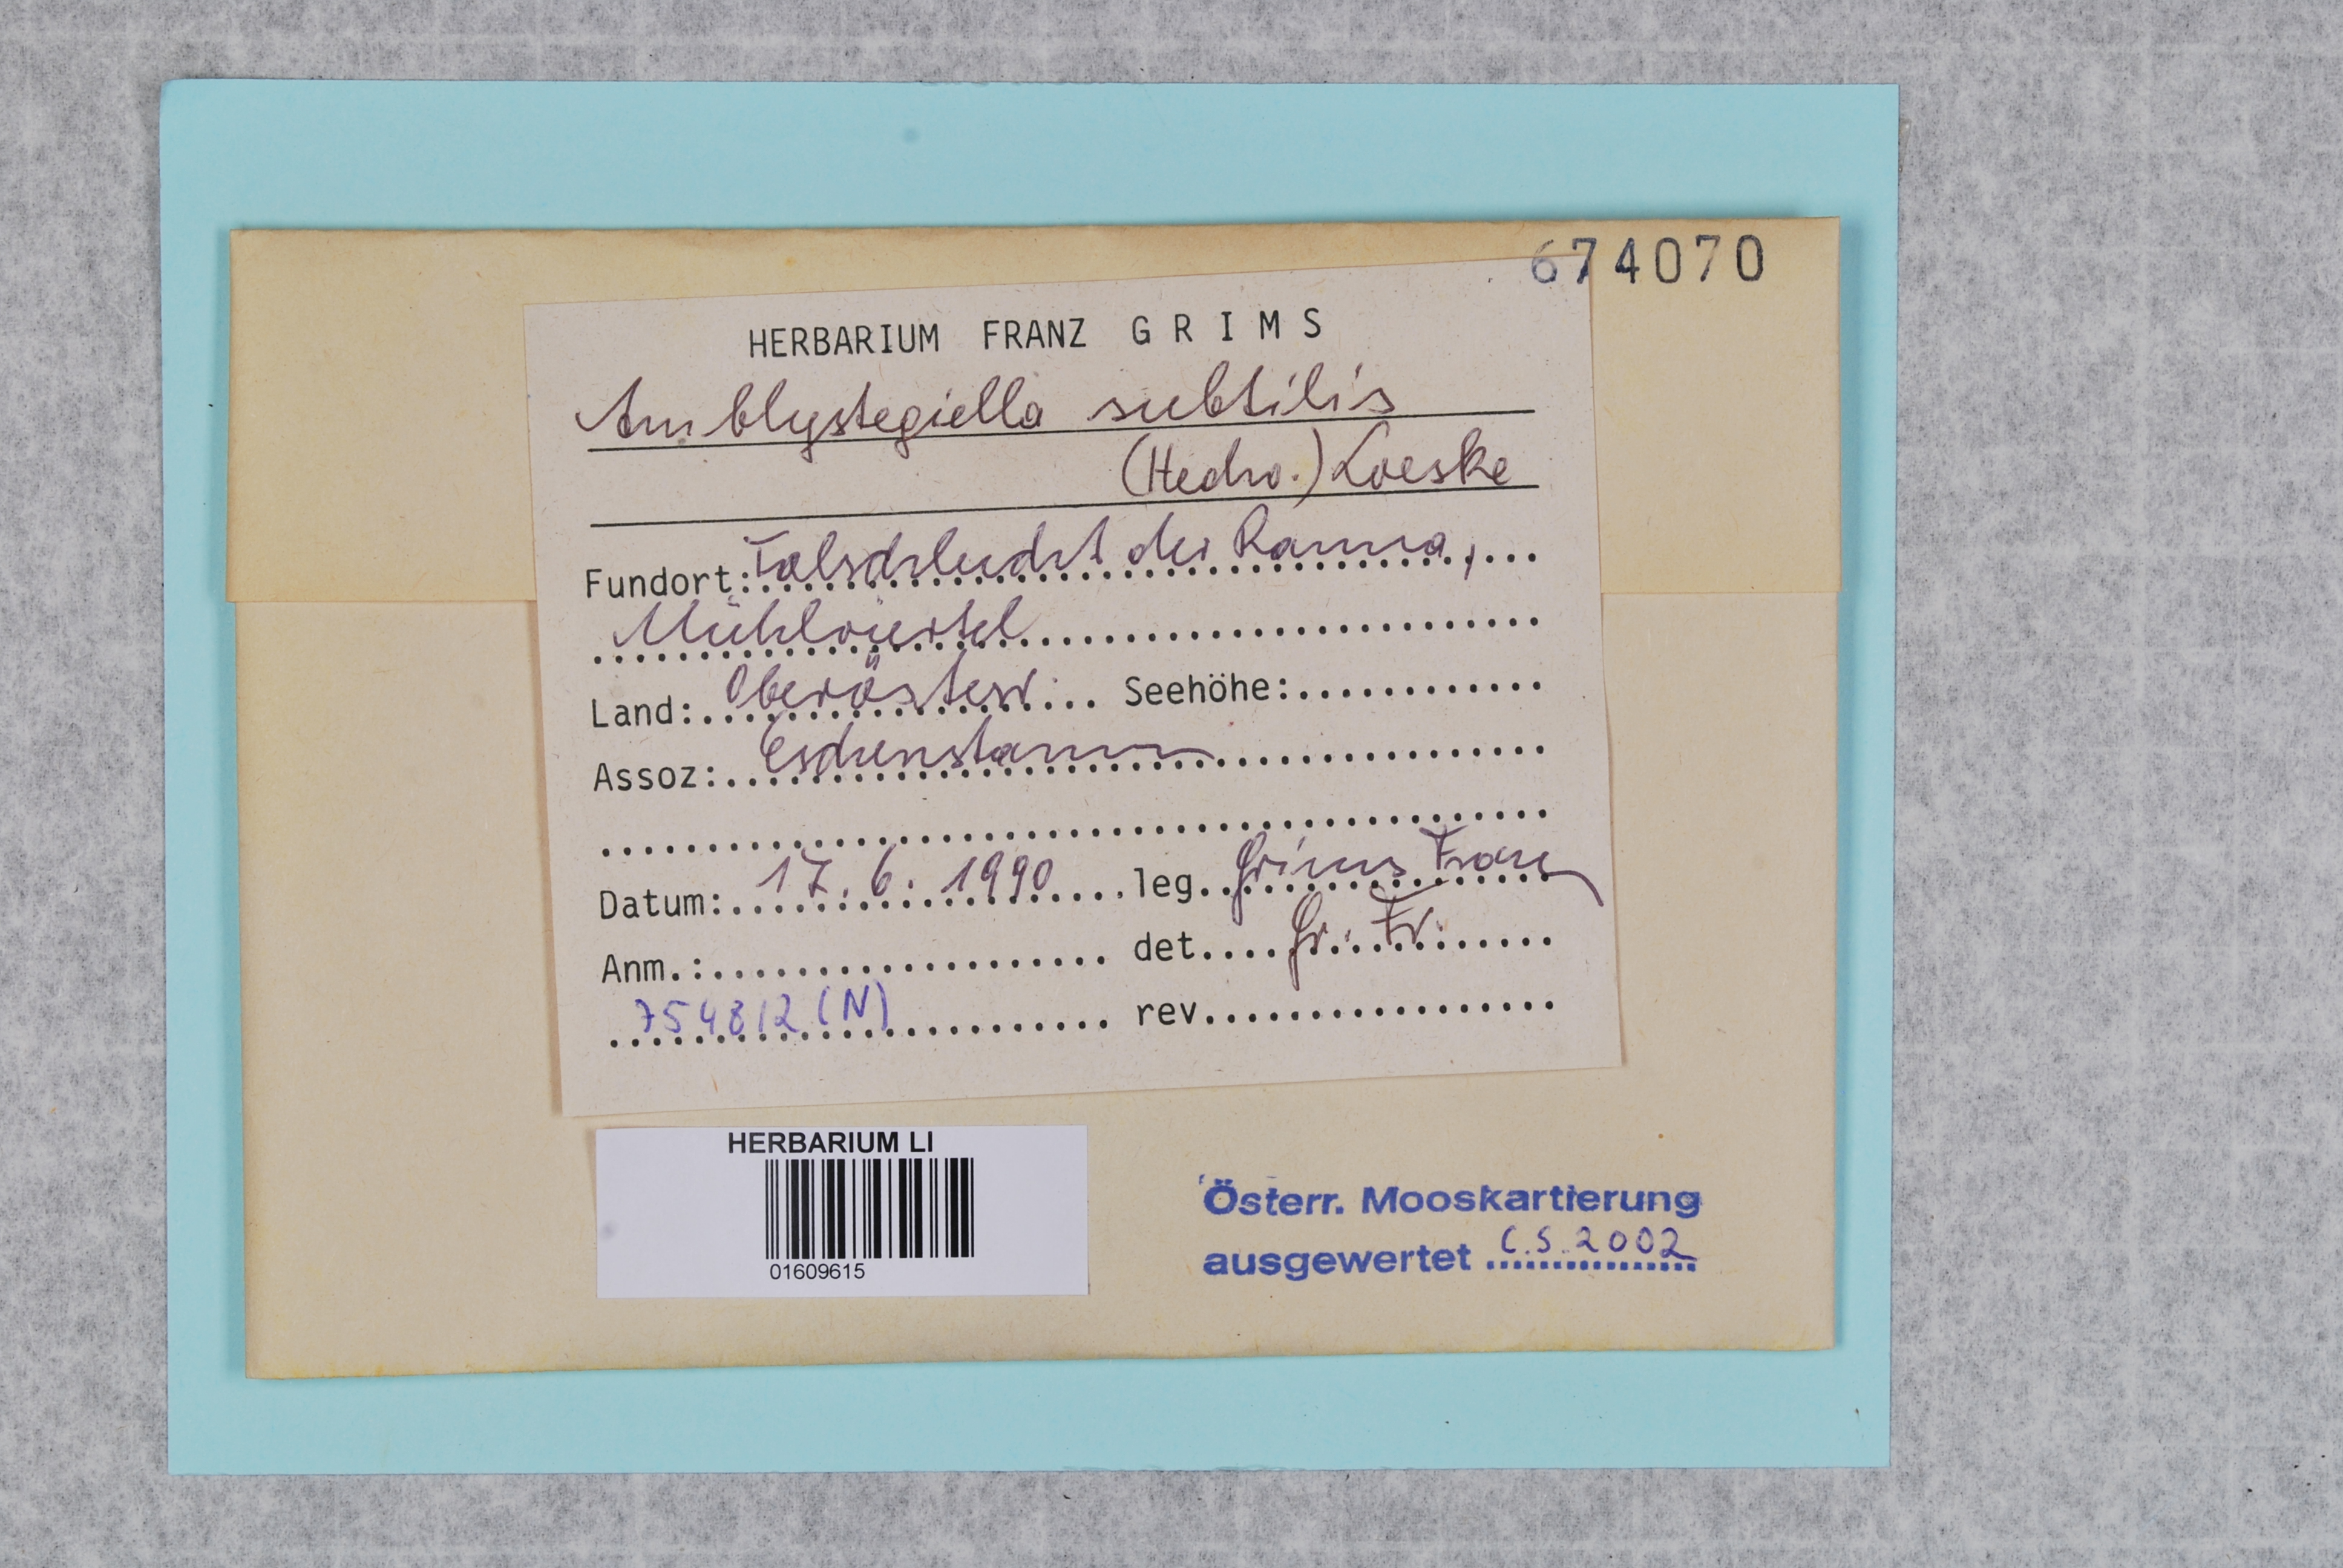 674070
HERBARIUM FRANZ G R I M S
Amblystegiella subtilis
(Hedw.) Loeske
Fundort: Talschlucht der Ranna,
Mühlviertel
Land: Oberösterr. Seehöhe:
Assoz: Eschenstamm
Datum: 17. 6. 1990 leg. Grims Franz
Anm.: det. Gr. Fr.
754812 (N) rev.
HERBARIUM LI
01609615
Österr. Mooskartierung
ausgewertet C.S. 2002